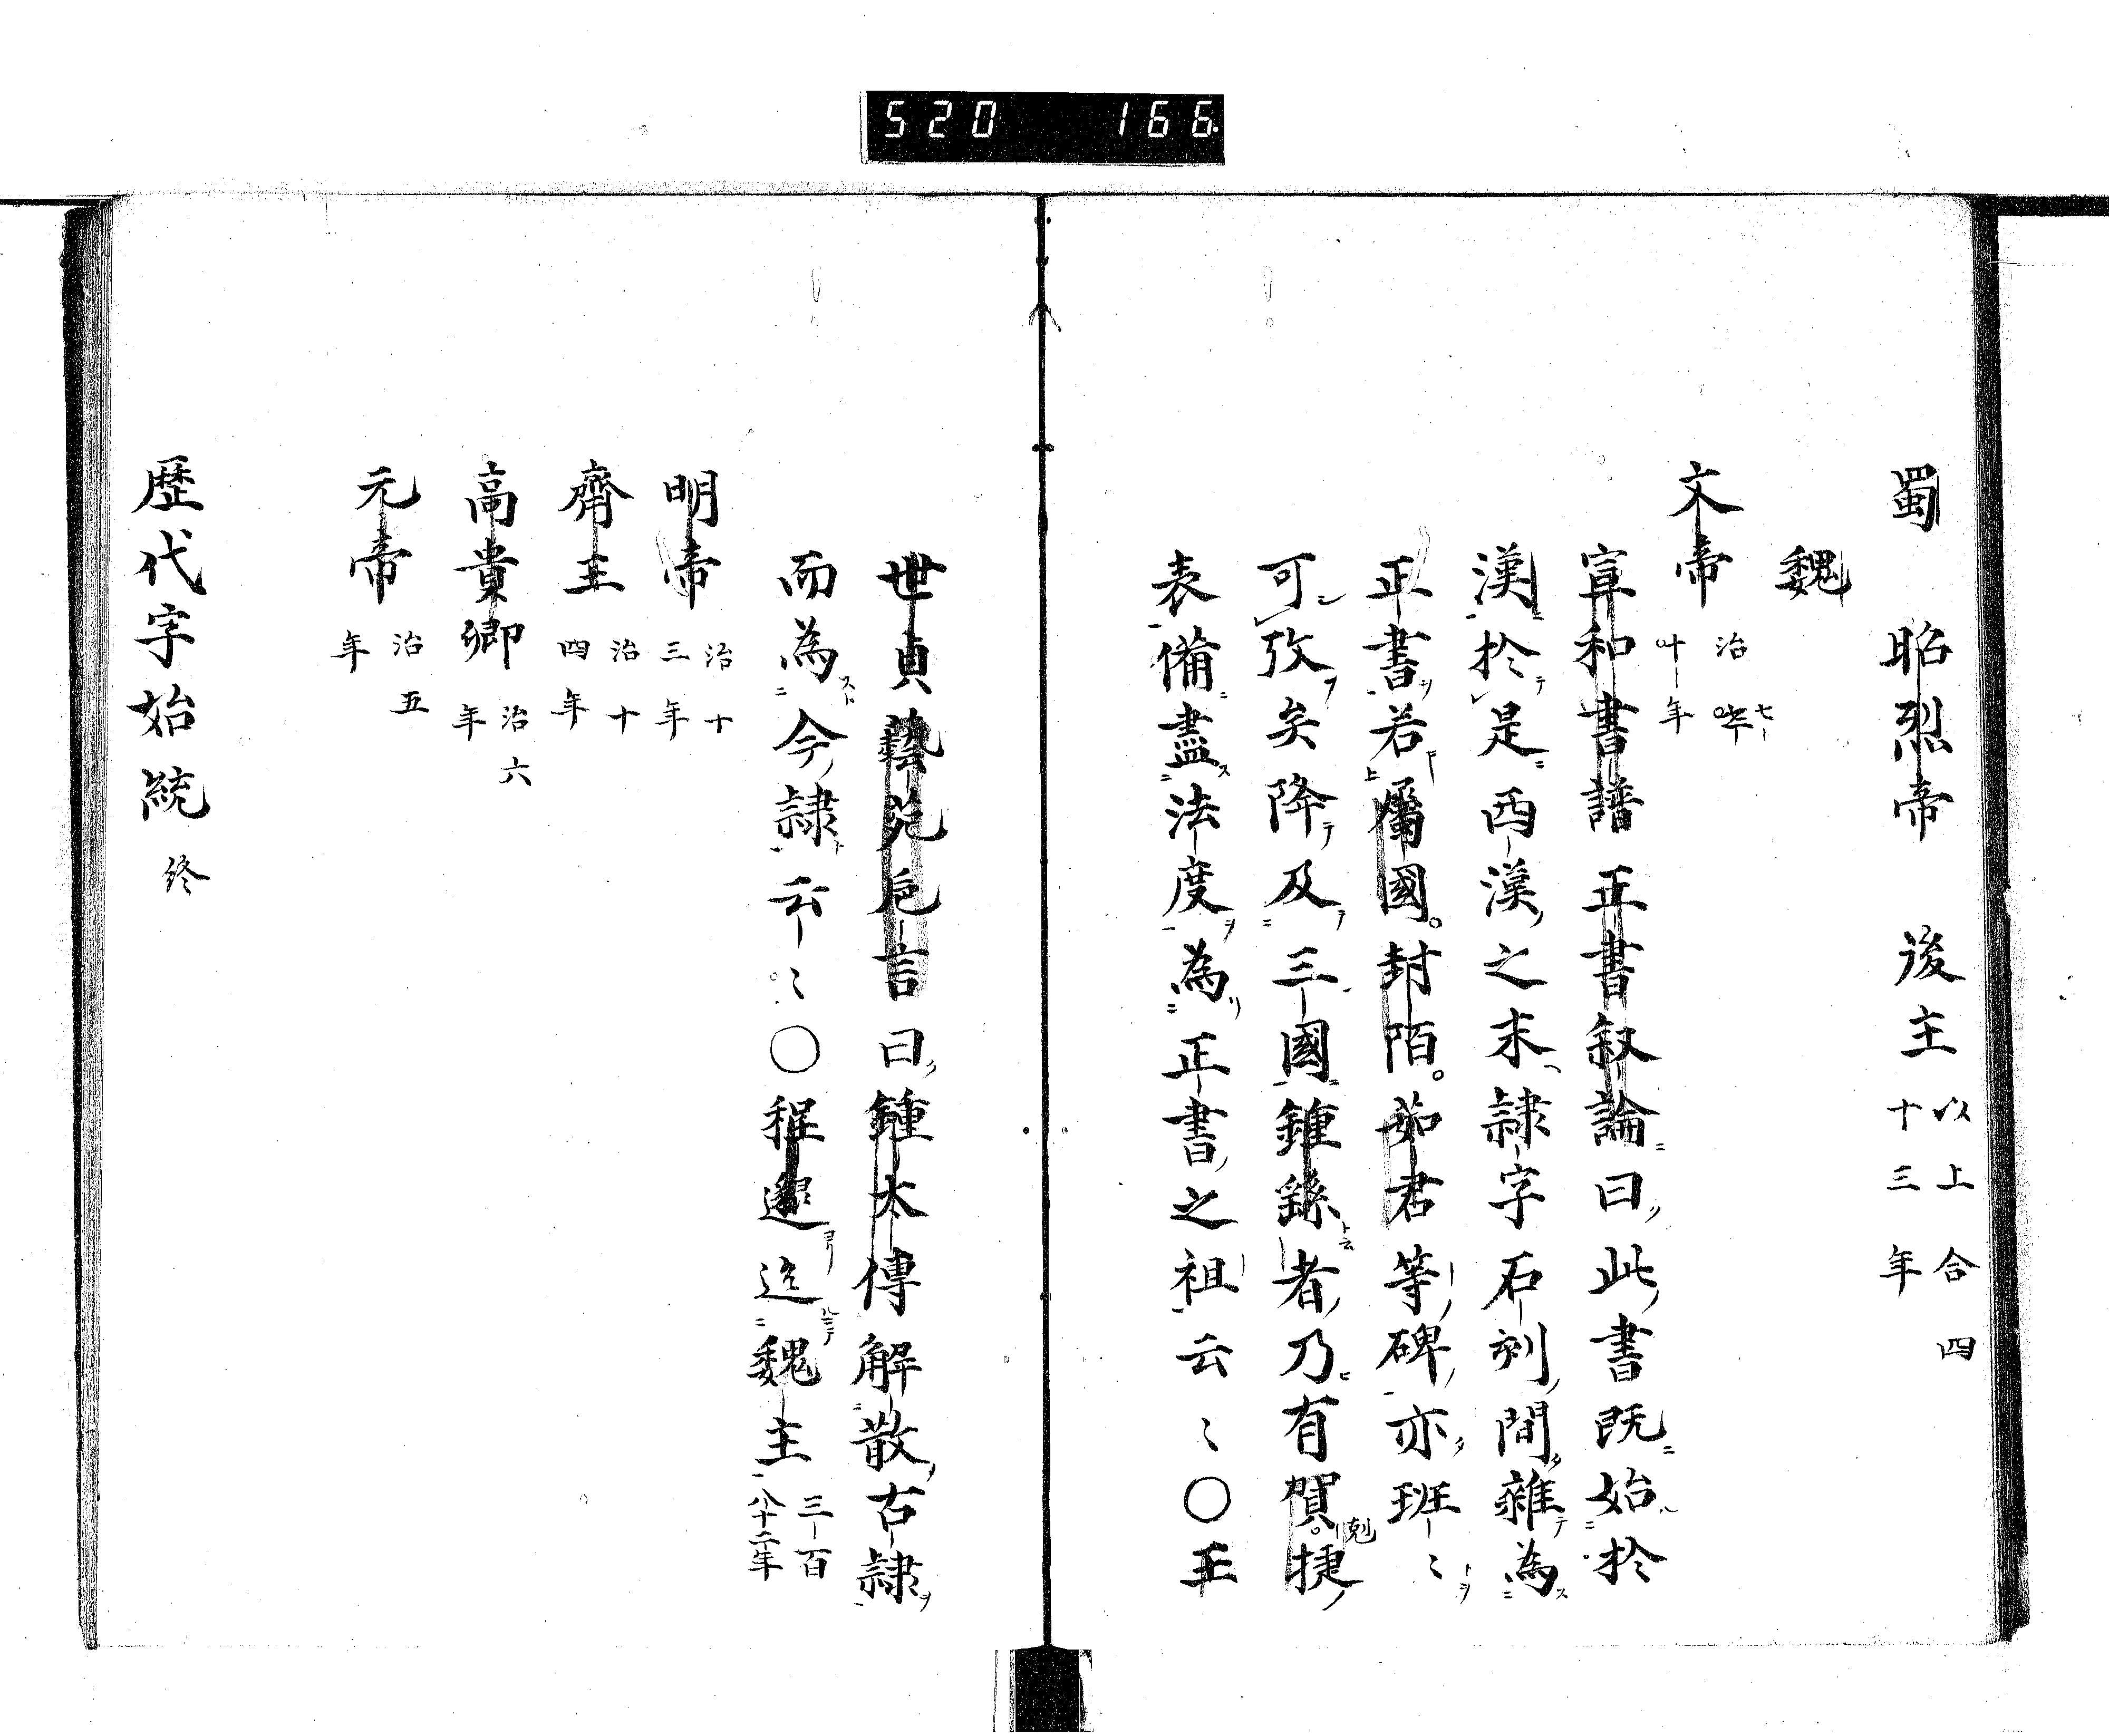 520 166
蜀 昭烈帝 後主 以上合四
十三年
魏
文帝 治
年
宣和書譜正書叙論曰此書既始於
漢於是西漢之末隷字石刻間雜為
正書若屬國。封陌。茹君等碑亦班〻
可攷矣降及三國鍾繇者乃有賀。捷
剋
表備盡法度為正書之祖云〻〇王
世貞藝苑巵言曰鍾太傅解散古隷
而為今隷云〻〇程邈迄魏主 三百
八十二年
明帝 治十
三年
齊王 治十
四年
高貴卿 治六
年
元帝 治五
年
歴代字始統 終